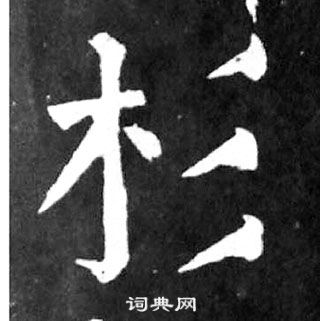 杉
词典网